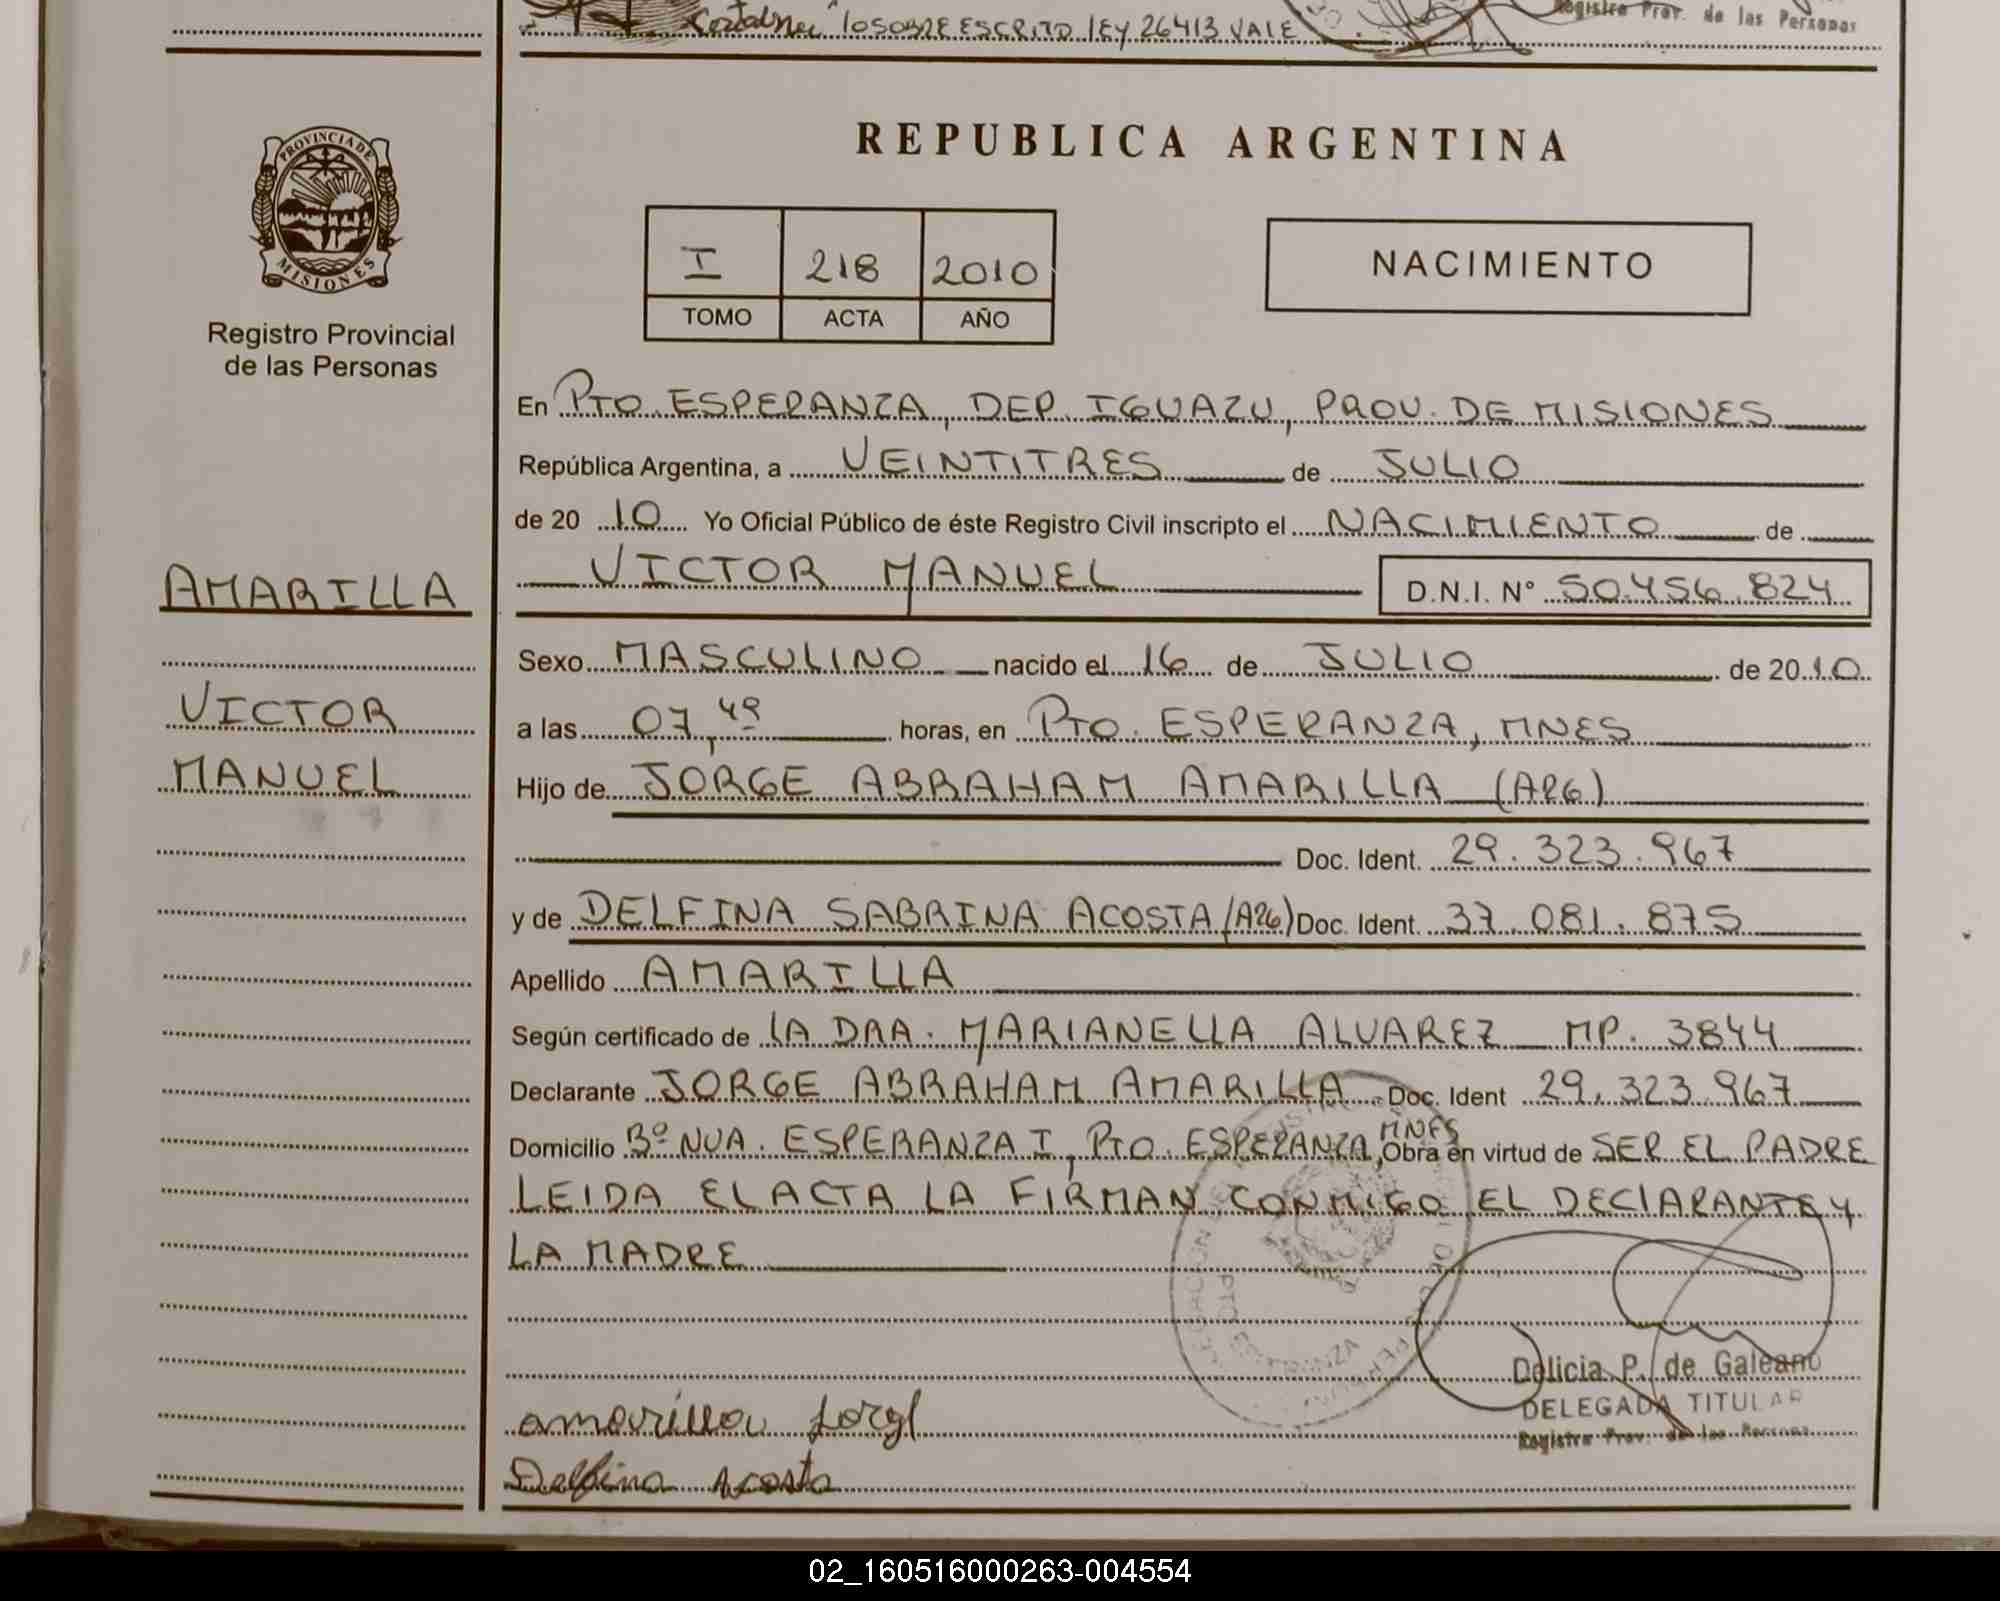 lo SOBRE ESCRITO LEY 26413 VALE
Registro Prov. de las Personas
PROVINCIA DE
MISIONES
Registro Provincial
de las Personas
AMARILLA
VICTOR
MANUEL
REPUBLICA ARGENTINA
I 218 2010
TOMO ACTA AÑO
NACIMIENTO
En PTO. ESPERANZA, DEP. IGUAZU, PROV. DE MISIONES
República Argentina, a VEINTITRES de JULIO
de 20 10 Yo Oficial Público de éste Registro Civil inscripto el NACIMIENTO de
VICTOR MANUEL D.N.I. Nº 50.456.824
Sexo MASCULINO nacido el 16 de JULIO de 2010
a las 07,49 horas, en PTO. ESPERANZA, MNES
Hijo de JORGE ABRAHAM AMARILLA (ARG)
Doc. Ident. 29.323.967
y de DELFINA SABRINA ACOSTA (ARG) Doc. Ident. 37.081.875
Apellido AMARILLA
Según certificado de LA DRA. MARIANELLA ALVAREZ MP. 3844
Declarante JORGE ABRAHAM AMARILLA Doc. Ident 29.323.967
Domicilio Bº NVA. ESPERANZA I, PTO. ESPERANZA, MNES Obra en virtud de SER EL PADRE
LEIDA EL ACTA LA FIRMAN CONMIGO EL DECLARANTE Y
LA MADRE
PTO ESPERANZA
Delicia P. de Galeano
DELEGADA TITULAR
Registro Prov. de las Personas
amarilla Jorge
Delfina Acosta
02_160516000263-004554